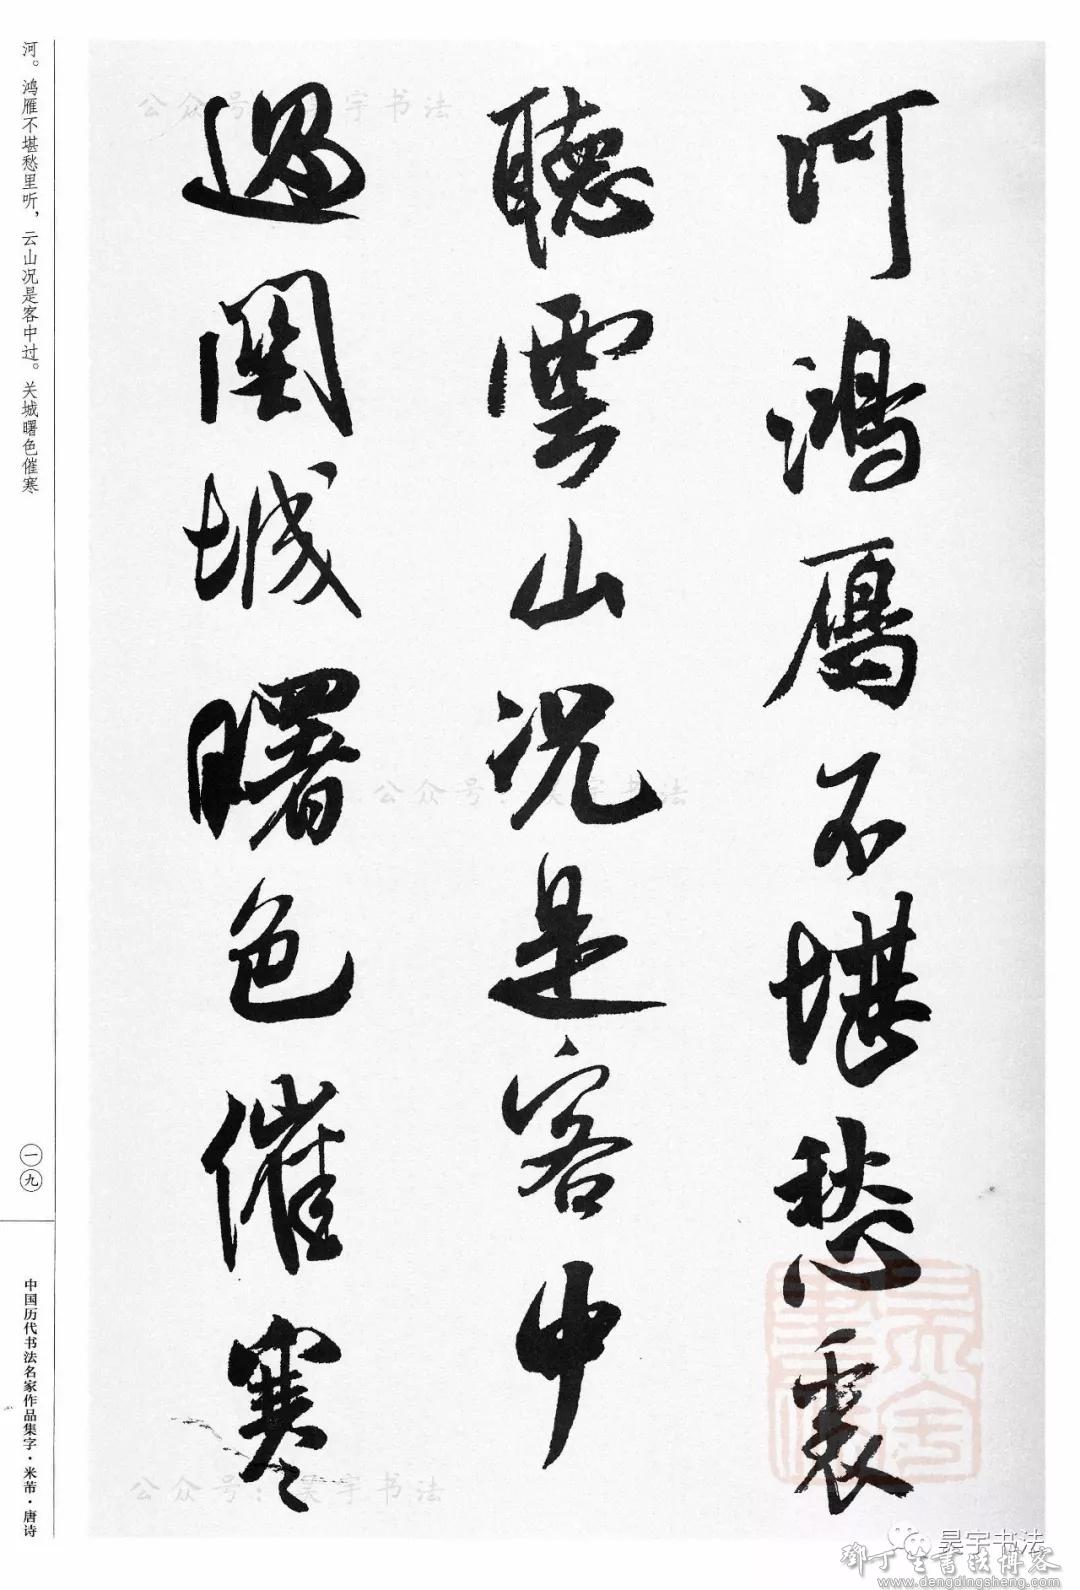 河鴻鴈不堪愁裏
聽雲山况是客中
過関城曙色催寒
河。鸿雁不堪愁里听，云山况是客中过。关城曙色催寒
一九
中国历代书法名家作品集字·米芾·唐诗
公众号：昊宇书法
公众号：昊宇书法
公众号：昊宇书法
昊宇书法
鄧丁生書法博客
www.dengdingsheng.com